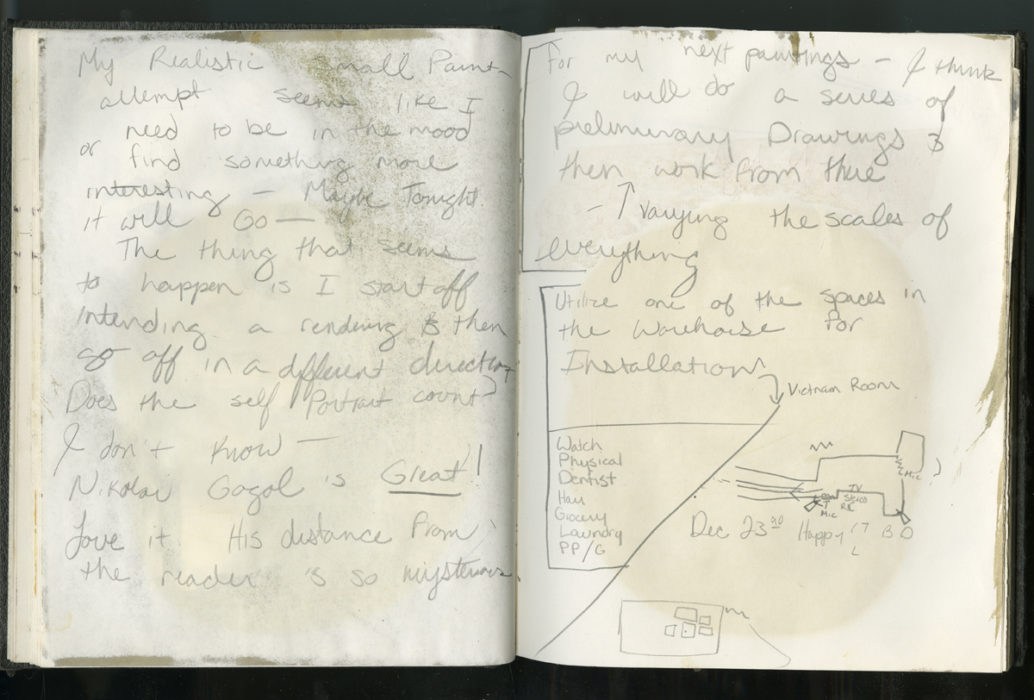 My Realistic Small Paint-
attempt seems like I
need to be in the mood
or find something more
interesting – Maybe Tonight
it will Go —
The thing that seems
to happen is I start off
intending a rendering & then
go off in a different direction
Does the self Portrait count?
I don't know —
Nikolai Gogol is Great!
Love it. His distance From
the reader is so mysterious
For my next paintings – I think
I will do a series of
preliminary Drawings &
then work from there
– ↑ Varying the scales of
everything
Utilize one of the spaces in
the Warehouse For
Installation
Vietnam Room
Watch
Physical
Dentist
Hair
Grocery
Laundry
PP/G
Mic ?
TV
Mic
Dec 23rd Happy B D